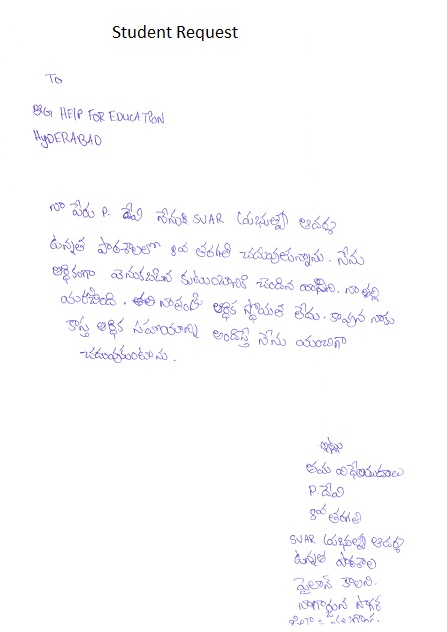 Student Request
To
BIGG HELP FOR EDUCATION
HyDERABAD
నా పేరు P. దేవి నేను SVAR (యభుల్పీ) ఆదర్శ
ఉన్నత పాఠశాలలో 8వ తరగతి చదువుతున్నాను. నేను
ఆర్థికంగా వెనుకబడిన కుటుంబానికి చెందిన నా తల్లి
నాతండ్రి ఆర్థిక స్థోమత లేదు. కావున నాకు
కాస్త ఆర్థిక సహాయాన్ని అందిస్తే నేను
చదువుకుంటాను.
ఇట్లు
తమ విధేయురాలు
P. దేవి
8వ తరగతి
SVAR ఆదర్శ
ఉన్నత పాఠశాల
పైలాన్ కాలని
నాగార్జున సాగర్